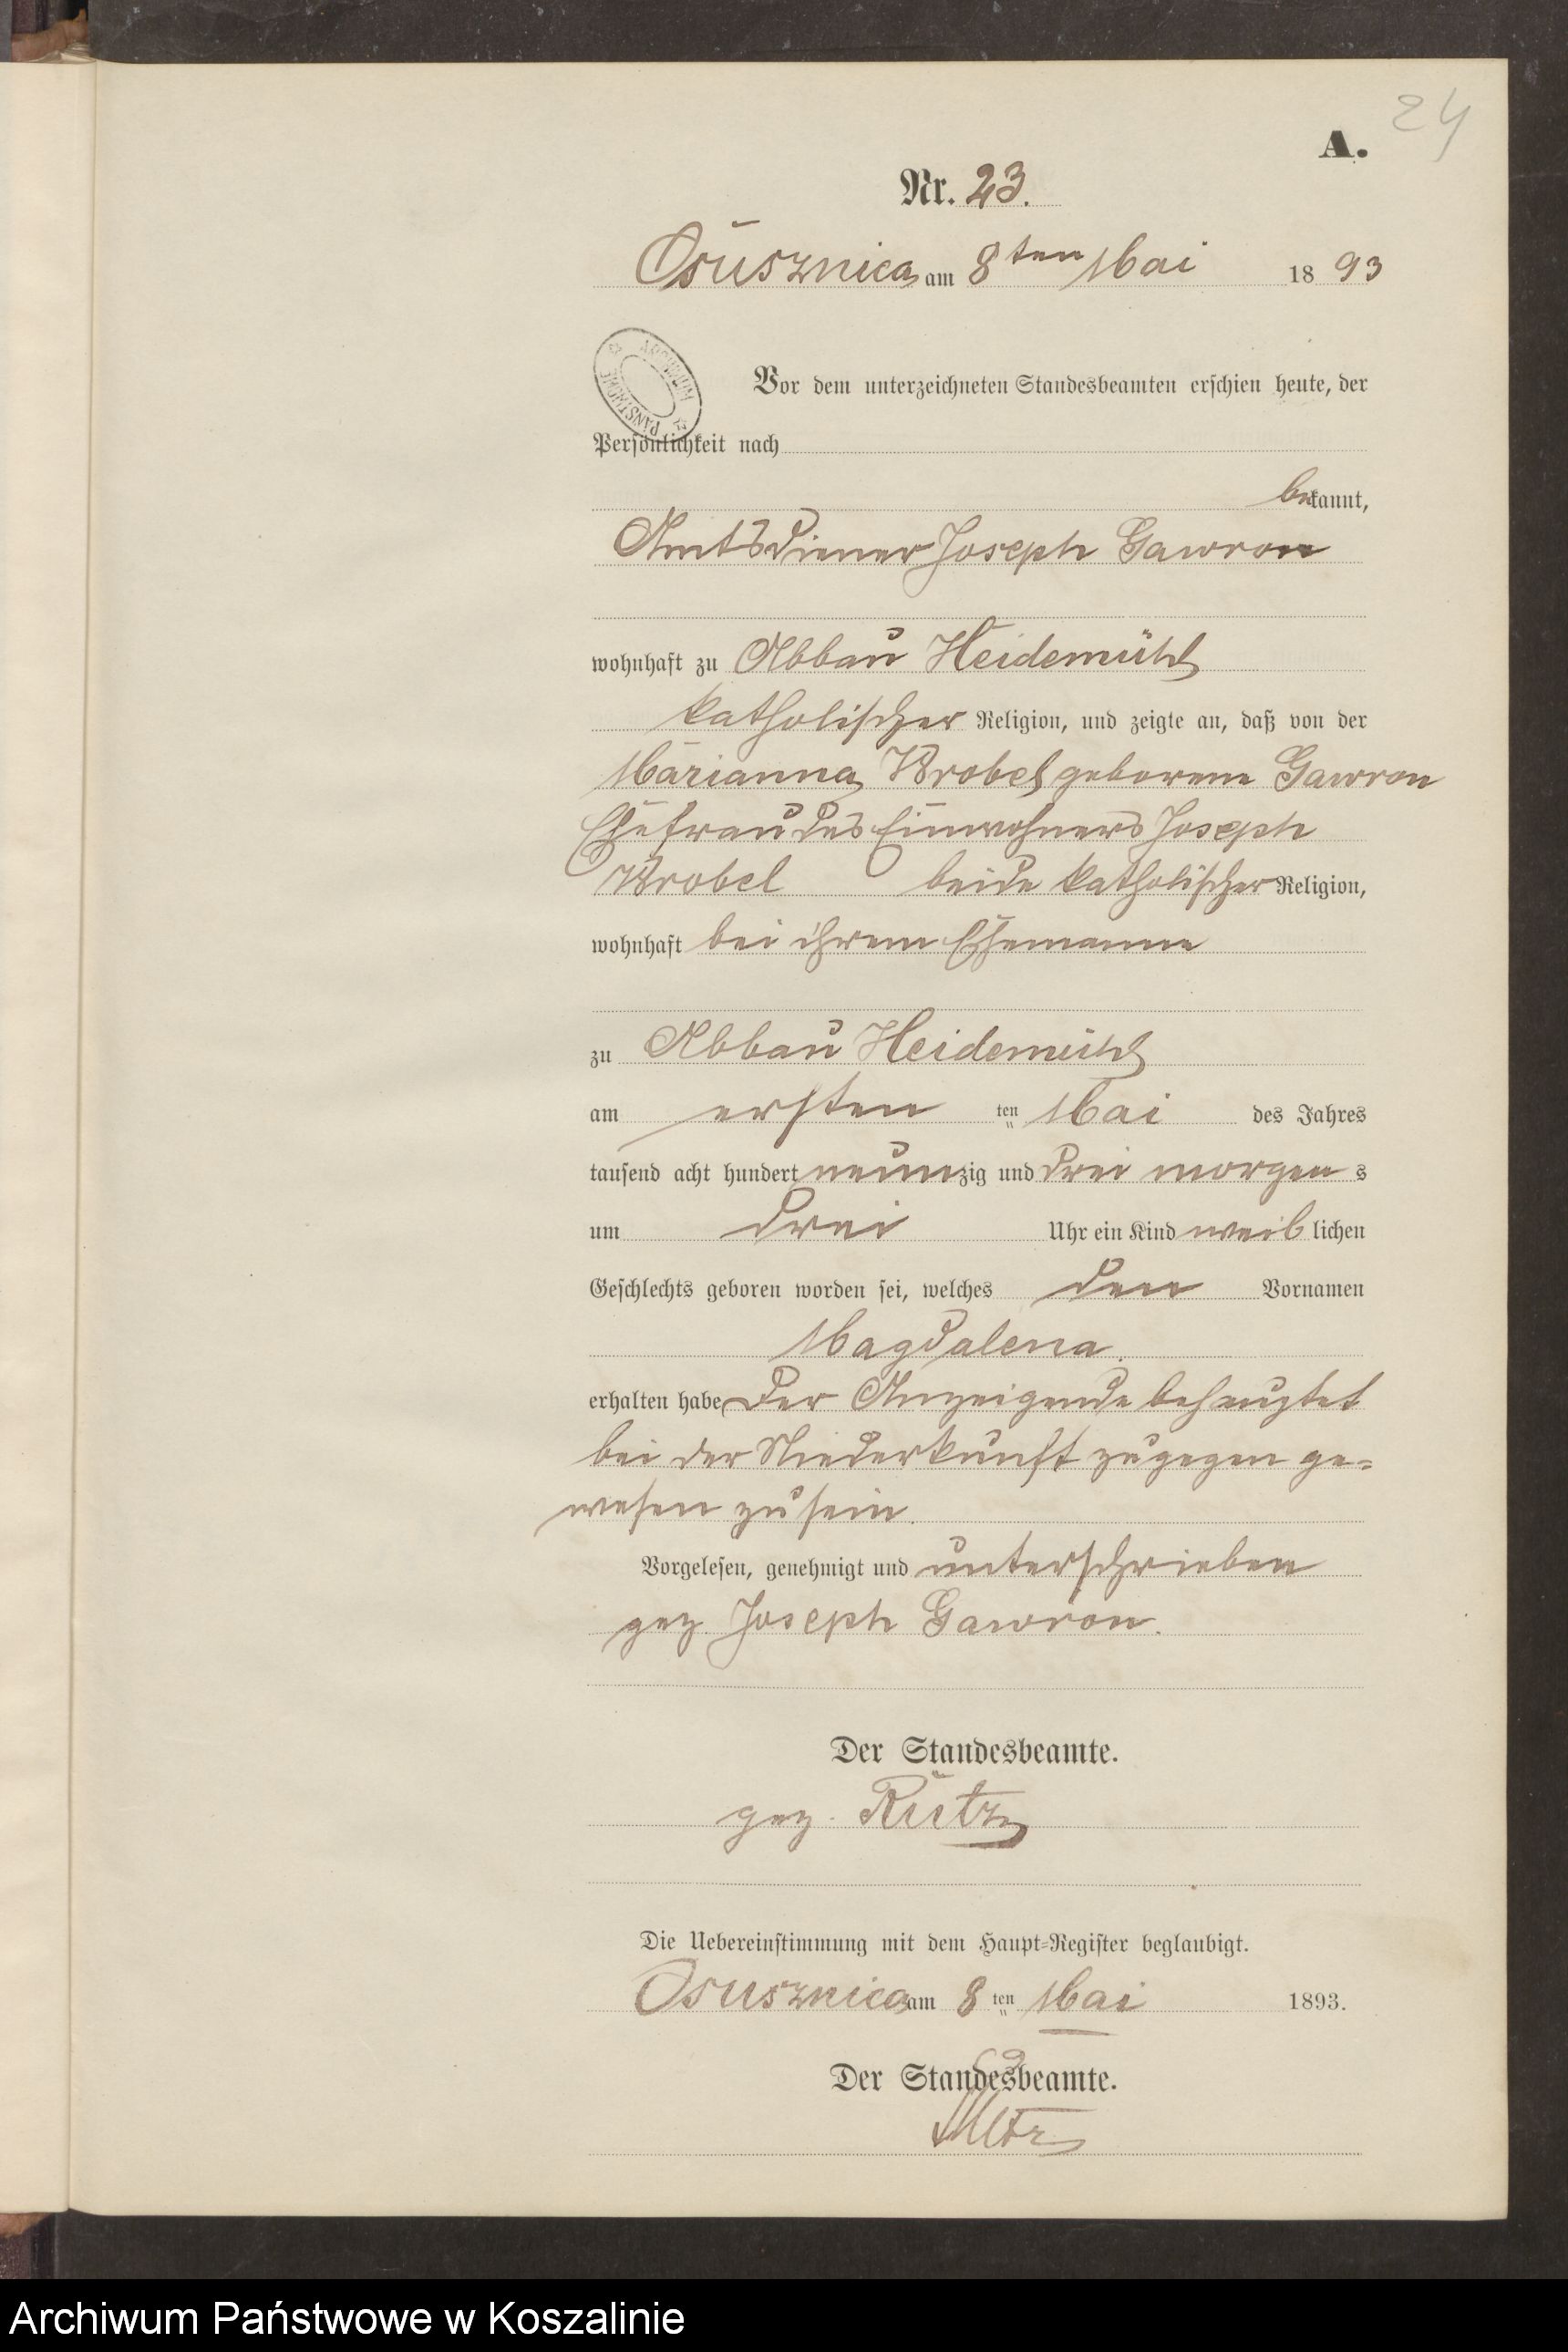 24
A.
Nr. 23.
Osusznica am 8ten Mai 1893
ARCHIWUM PAŃSTWOWE
Vor dem unterzeichneten Standesbeamten erschien heute, der
Persönlichkeit nach
bekannt,
Amtsdiener Joseph Gawron
wohnhaft zu Abbau Heidemühl
katholischer Religion, und zeigte an, daß von der
Marianna Wrobel geborene Gawron
Ehefrau des Einwohners Joseph
Wrobel beide katholischer Religion,
wohnhaft bei ihrem Ehemanne
zu Abbau Heidemühl
am ersten ten Mai des Jahres
tausend acht hundert neunzig und drei morgens
um drei Uhr ein Kind weiblichen
Geschlechts geboren worden sei, welches den Vornamen
Magdalena.
erhalten habe Der Anzeigende behauptet
bei der Niederkunft zugegen ge=
wesen zu sein.
Vorgelesen, genehmigt und unterschrieben
gez. Joseph Gawron.
Der Standesbeamte.
gez. Rutz
Die Uebereinstimmung mit dem Haupt=Register beglaubigt.
Osusznica am 8ten Mai 1893.
Der Standesbeamte.
Rutz
Archiwum Państwowe w Koszalinie